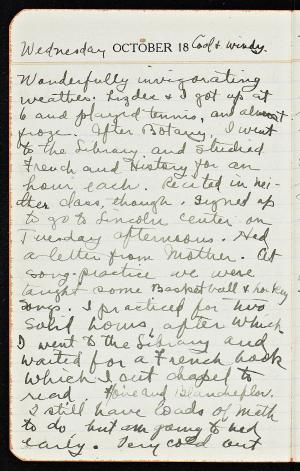 Wednesday OCTOBER 18 Cool & windy.
Wonderfully invigorating
weather. & I got up at
6 and played tennis, and almost
froze. After Botany, I went
to the Library and studied
French and History for an
hour each. Recited in nei-
ther class, though. Signed up
to go to Lincoln Center on
Tuesday afternoons. Had
a letter from Mother. At
song-practice we were
taught some Basketball & hockey
songs. I practiced for two
solid hours, after which
I went to the Library and
waited for a French book
which I cut chapel to
read. Floire and Blanchefleur.
I still have loads of Math
to do but am going to bed
early. Very cold out